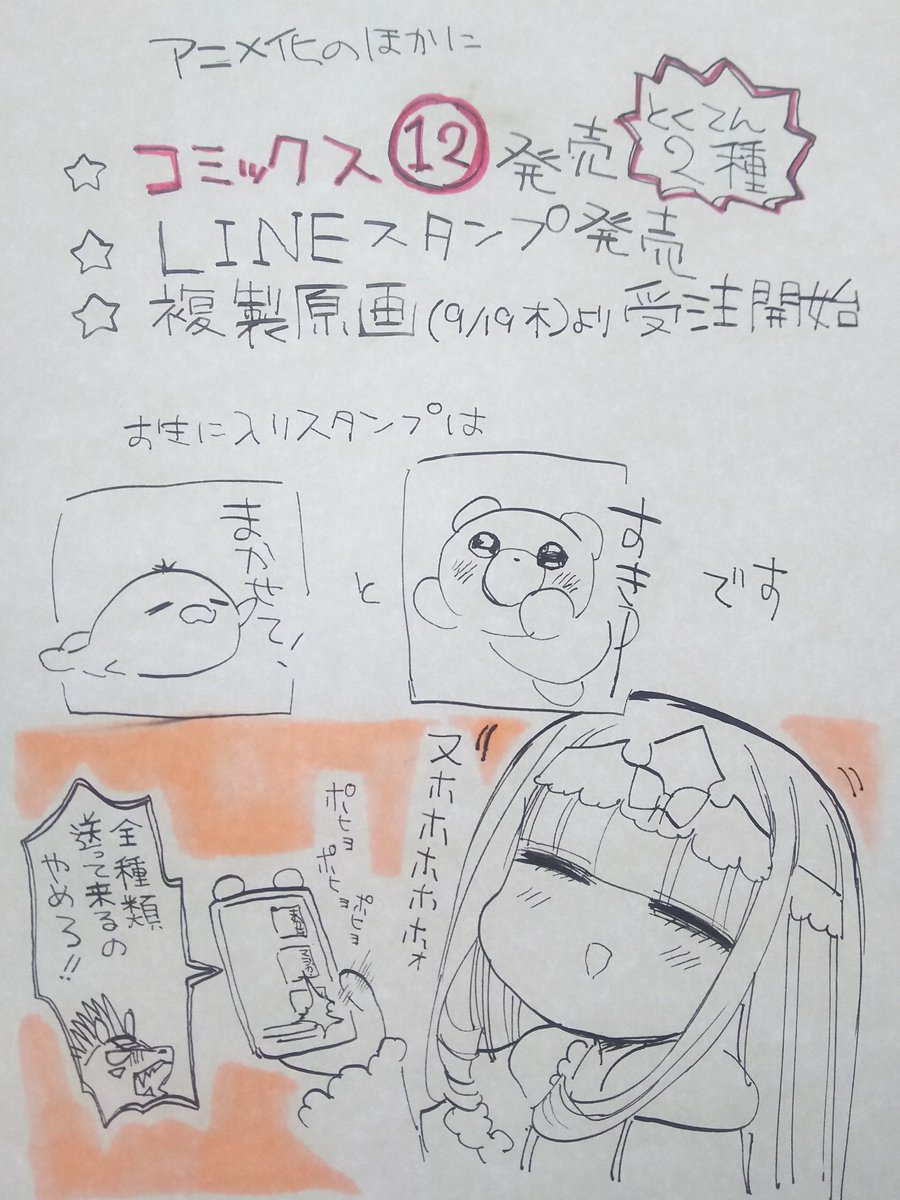 アニメ化のほかに
とくてん
2種
☆ コミックス⑫発売
☆ LINEスタンプ発売
☆ 複製原画(9/19木)より受注開始
お気に入りスタンプは
まかせて!
と
すきっ
です
ヌホホホホホォ
ポヒョ
ポヒョ
ポヒョ
全種類
送って来るの
やめろ!!